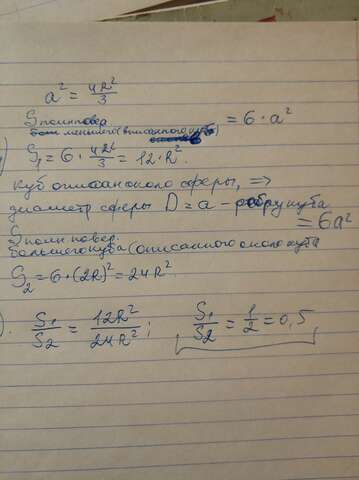 a² = 4R²/3
S полн повер = 6·a²
меньшего (вписанного куба)
S₁ = 6 · 4R²/3 = 12·R².
куб описан около сферы, ⇒
диаметр сферы D = a – ребру куба
S полн повер. = 6a²
большего куба (описанного около куба
S₂ = 6·(2R)² = 24R²
). S₁/S₂ = 12R²/24R² ; S₁/S₂ = 1/2 = 0,5